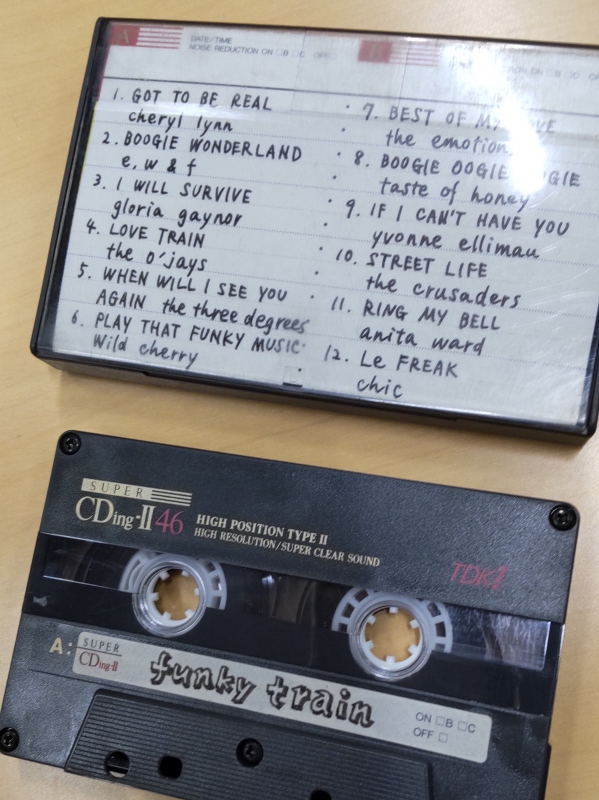 A
DATE/TIME
NOISE REDUCTION ON □B □C OFF
1. GOT TO BE REAL
cheryl lynn
2. BOOGIE WONDERLAND
e, w & f
3. I WILL SURVIVE
gloria gaynor
4. LOVE TRAIN
the o'jays
5. WHEN WILL I SEE YOU
AGAIN the three degrees
6. PLAY THAT FUNKY MUSIC
Wild cherry
7. BEST OF MY
the emotion
8. BOOGIE OOGIE
taste of honey
9. IF I CAN'T HAVE YOU
yvonne ellimau
10. STREET LIFE
the crusaders
11. RING MY BELL
anita ward
12. Le FREAK
chic
SUPER
CDing-II 46
HIGH POSITION TYPE II
HIGH RESOLUTION/SUPER CLEAR SOUND
TDK
A: SUPER
CDing-II
funky train
ON □B □C
OFF □